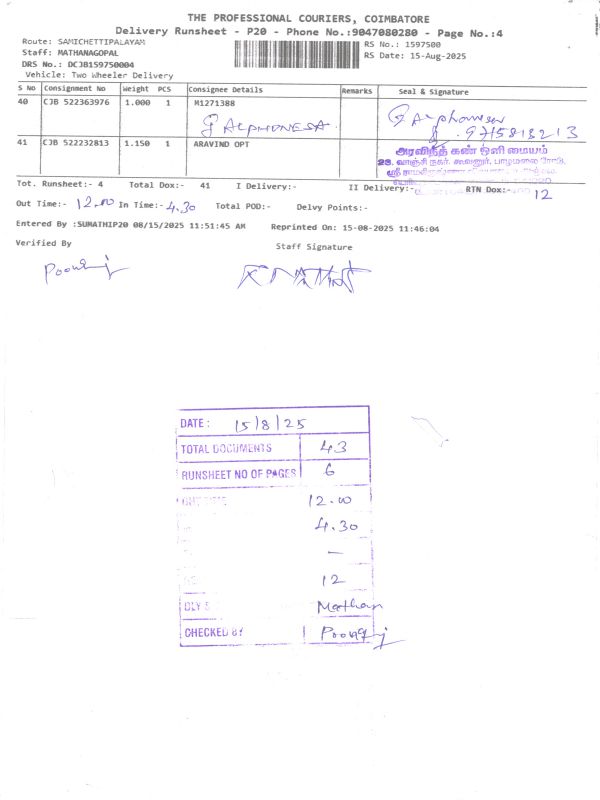 THE PROFESSIONAL COURIERS, COIMBATORE
Delivery Runsheet - P20 - Phone No.:9047080280 - Page No.:4
Route: SAMICHETTIPALAYAM
Staff: MATHANAGOPAL
DRS No.: DCJB159750004
Vehicle: Two Wheeler Delivery
RS No.: 1597500
RS Date: 15-Aug-2025
S No Consignment No Weight PCS Consignee Details Remarks Seal & Signature
40 CJB 522363976 1.000 1 M1271388
G ALPHONESA
G Alphonesa
9715813213
41 CJB 522232813 1.150 1 ARAVIND OPT
அரவிந்த் கண் ஒளி மையம்
23, வாஞ்சி நகர்,
Tot. Runsheet:- 4 Total Dox:- 41 I Delivery:- II Delivery:- RTN Dox:- 12
Out Time:- 12.00 In Time:- 4.30 Total POD:- Delvy Points:-
Entered By :SUMATHIP20 08/15/2025 11:51:45 AM Reprinted On: 15-08-2025 11:46:04
Verified By Staff Signature
DATE : 15/8/25
TOTAL DOCUMENTS 43
RUNSHEET NO OF PAGES 6
12.00
4.30
-
12
DLY S Mathan
CHECKED BY